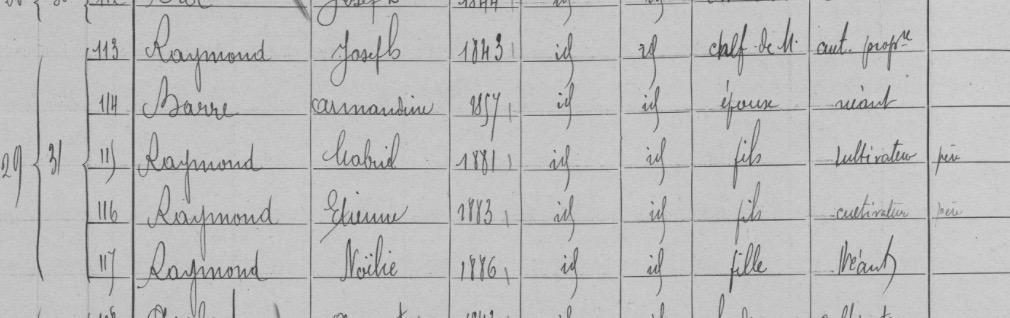 113 Raymond Joseph 1843 id id chef de M. cult. propre
114 Barre armandine 1857 id id épouse néant
29 31 115 Raymond Gabriel 1881 id id fils cultivateur père
116 Raymond Etienne 1883 id id fils cultivateur père
117 Raymond Noëlie 1886 id id fille Néant